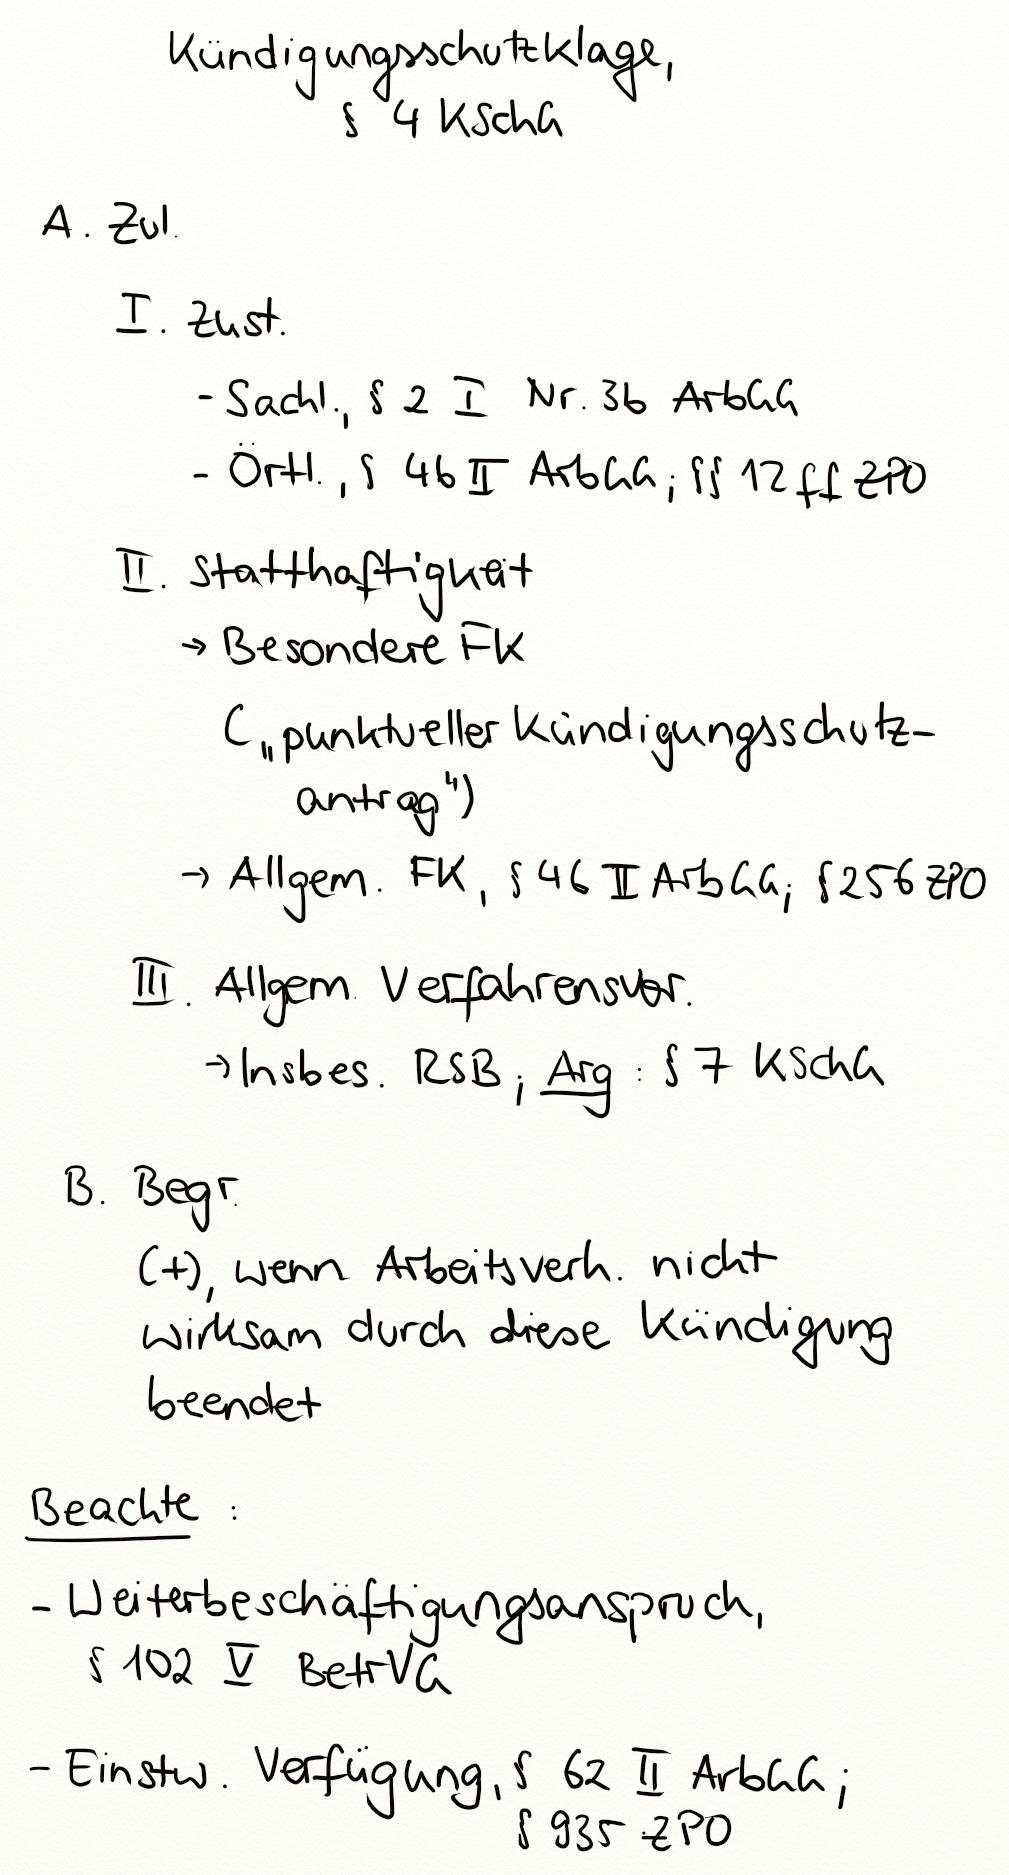 Kündigungsschutzklage,
§ 4 KSchG
A. Zul.
I. Zust.
- Sachl., § 2 I Nr. 3b ArbGG
- Örtl., § 46 II ArbGG; §§ 12 ff ZPO
II. Statthaftigkeit
→ Besondere FK
(„punktueller Kündigungsschutz-
antrag“)
→ Allgem. FK, § 46 II ArbGG; § 256 ZPO
III. Allgem. Verfahrensvor.
→ Insbes. RSB; Arg: § 7 KSchG
B. Begr.
(+), wenn Arbeitsverh. nicht
wirksam durch diese Kündigung
beendet
Beachte :
- Weiterbeschäftigungsanspruch,
§ 102 V BetrVG
- Einstw. Verfügung, § 62 II ArbGG;
§ 935 ZPO